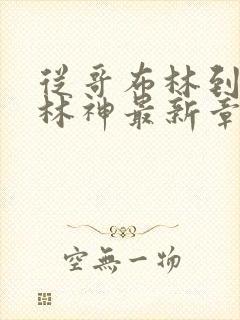 從哥布林到
林神最新章
空無一物